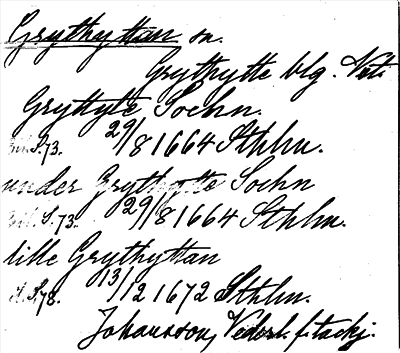 Grythyttan sn.
Grythytte blg. Västm.
Gryttyte Sochn.
S. 73. 29/8 1664 Sthlm.
under Grythytte Sochn
S. 73. 29/8 1664 Sthlm.
lille Grythyttan
S. 78. 13/12 1672 Sthlm.
Johansson,